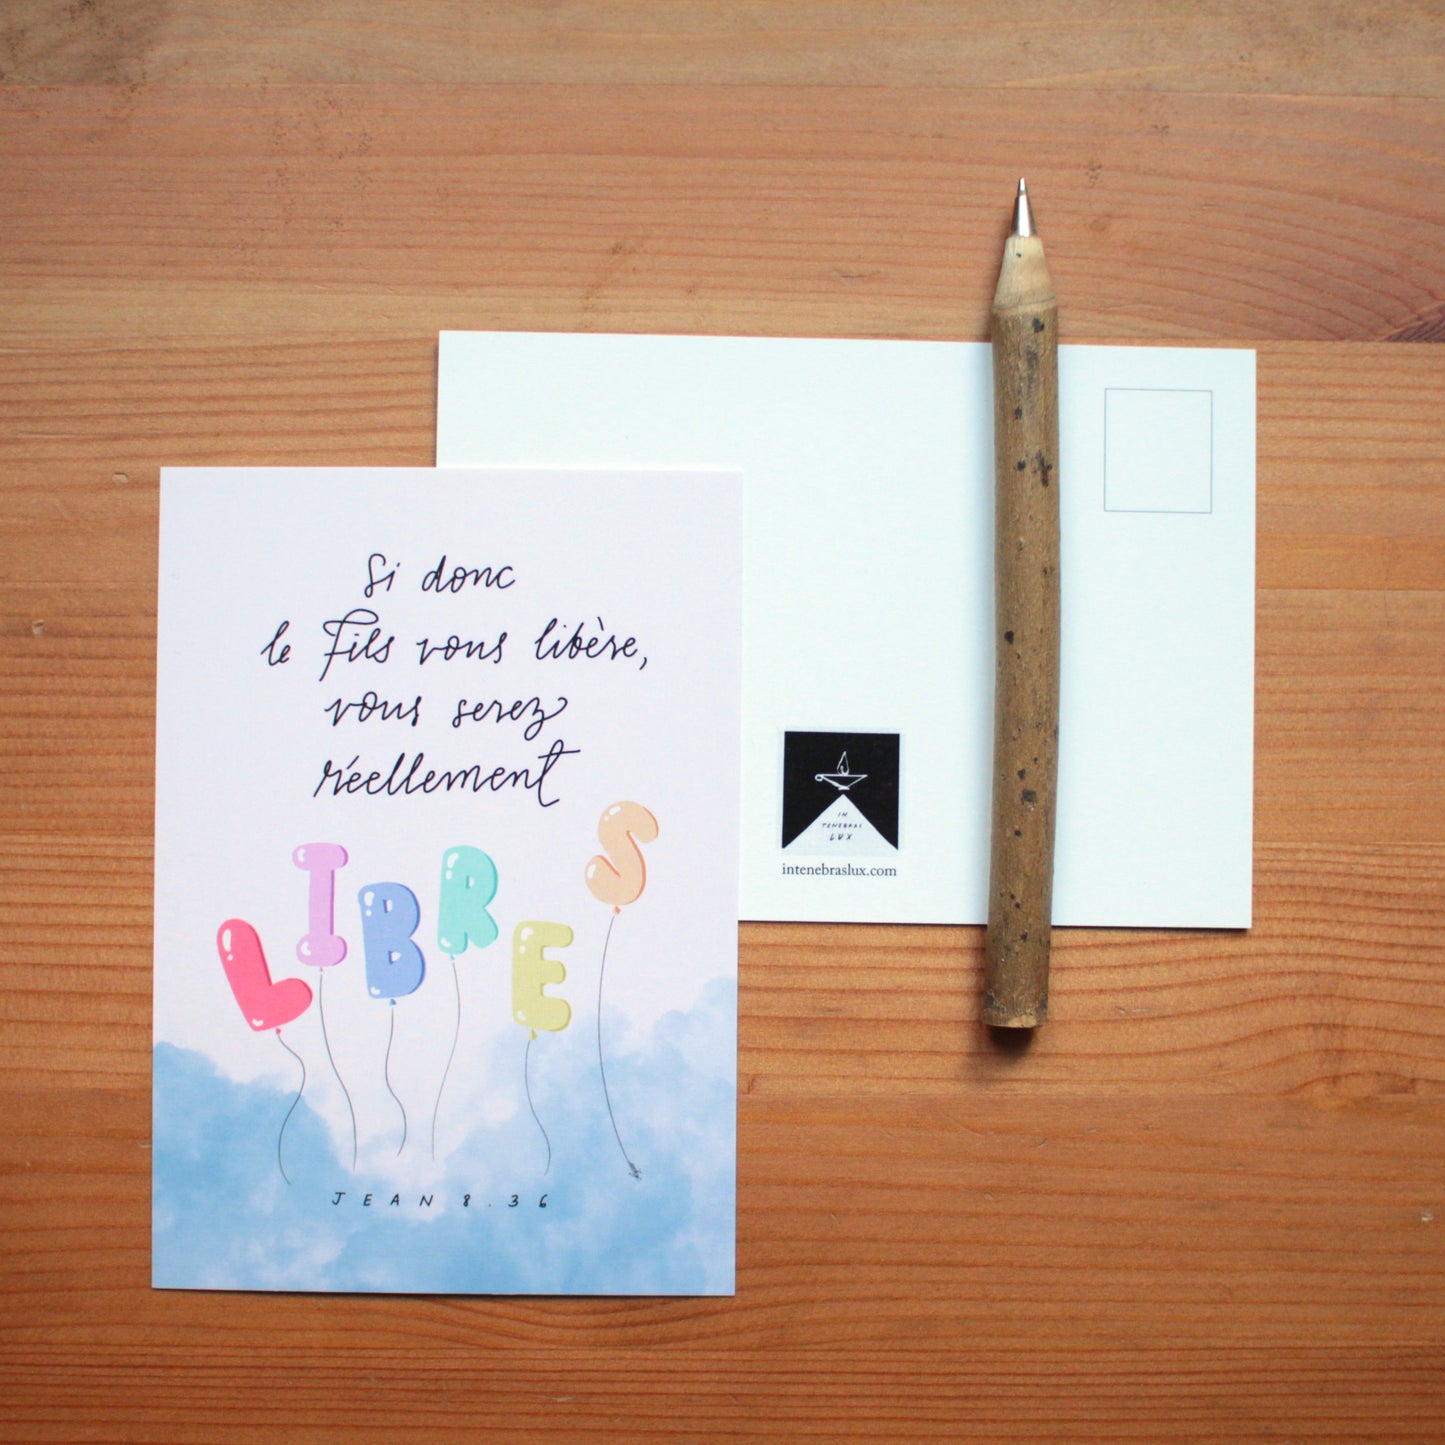 Si donc
le Fils vous libère,
vous serez
réellement
LIBRES
JEAN 8.36
IN
TENEBRAS
LUX
intenebraslux.com